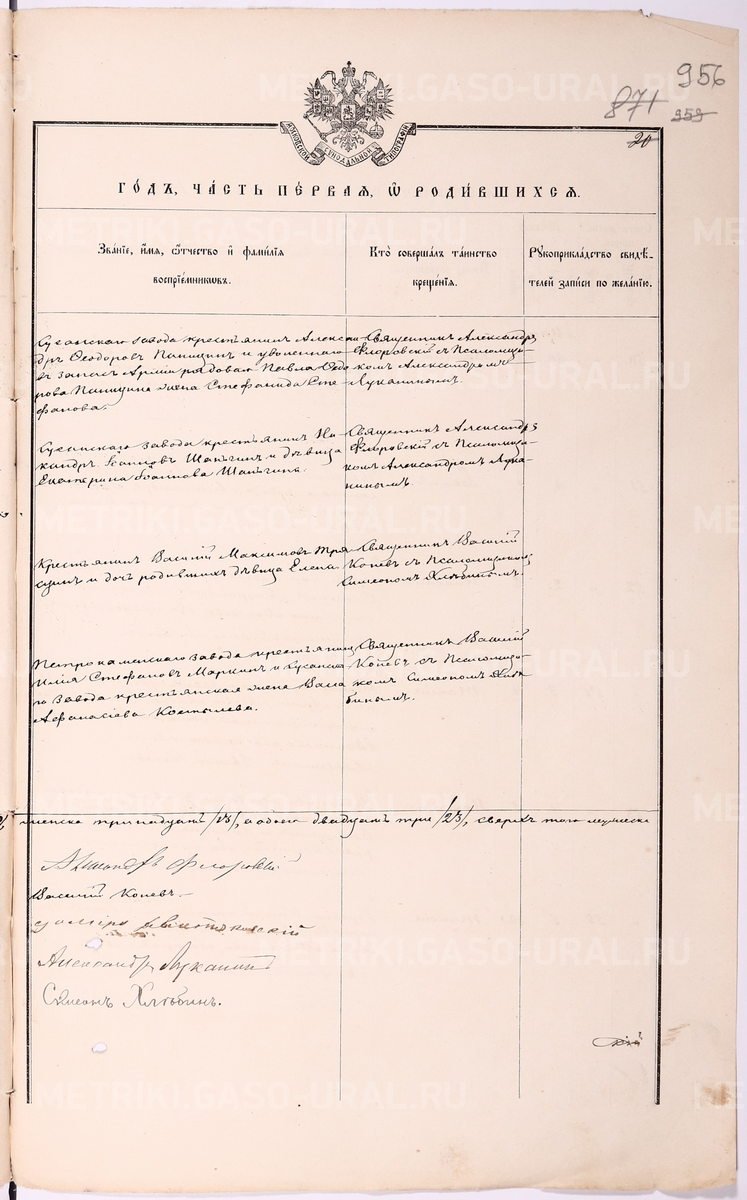 956
871 959
20
МОСКОВСКОЙ СУНОДАЛЬНОЙ ТИПОГРАФІИ
ГОДЪ, ЧАСТЬ ПЕРВАЯ, Ѡ РОДИВШИХСЯ.
Званіе, имя, ѿчество и фамилія
воспріемниковъ.
Кто совершалъ таинство
крещенія.
Рукоприкладство свидѣ-
телей записи по желанію.
Сусанскаго завода крестьянинъ Алекса-
ндръ Ѳеодоровъ и уволеннаго
въ запасъ Арміи рядоваго Павла Ѳедо
рова жена Стефанида Сте
фанова.
Священникъ Александръ
Флоровскій съ Псаломщи-
комъ Александромъ
Луканинымъ.
Сусанскаго завода крестьянинъ Ни-
кандръ Іоанновъ и дѣвица
Екатерина Іоаннова
Священникъ Александръ
Флоровскій съ Псаломщи-
комъ Александромъ Лука-
нинымъ.
Крестьянинъ Василій Максимовъ
и дочь родившихъ дѣвица Елена.
Священникъ Василій
Коневъ съ Псаломщикомъ
Симеономъ Хлѣбинымъ.
Петрокаменскаго завода крестьянинъ
Илія Стефановъ Маркинъ и Сусанска
го завода крестьянская жена
Афанасіева Костылева.
Священникъ Василій
Коневъ съ Псаломщи-
комъ Симеономъ Хлѣ
бинымъ.
женска тринадцать /13/, а обоего двадцать три /23/, сверхъ того мужска
Александръ Флоровскій
Василій Коневъ
Александръ Луканинъ
Симеонъ Хлѣбинъ.
METRIKI.GASO-URAL.RU